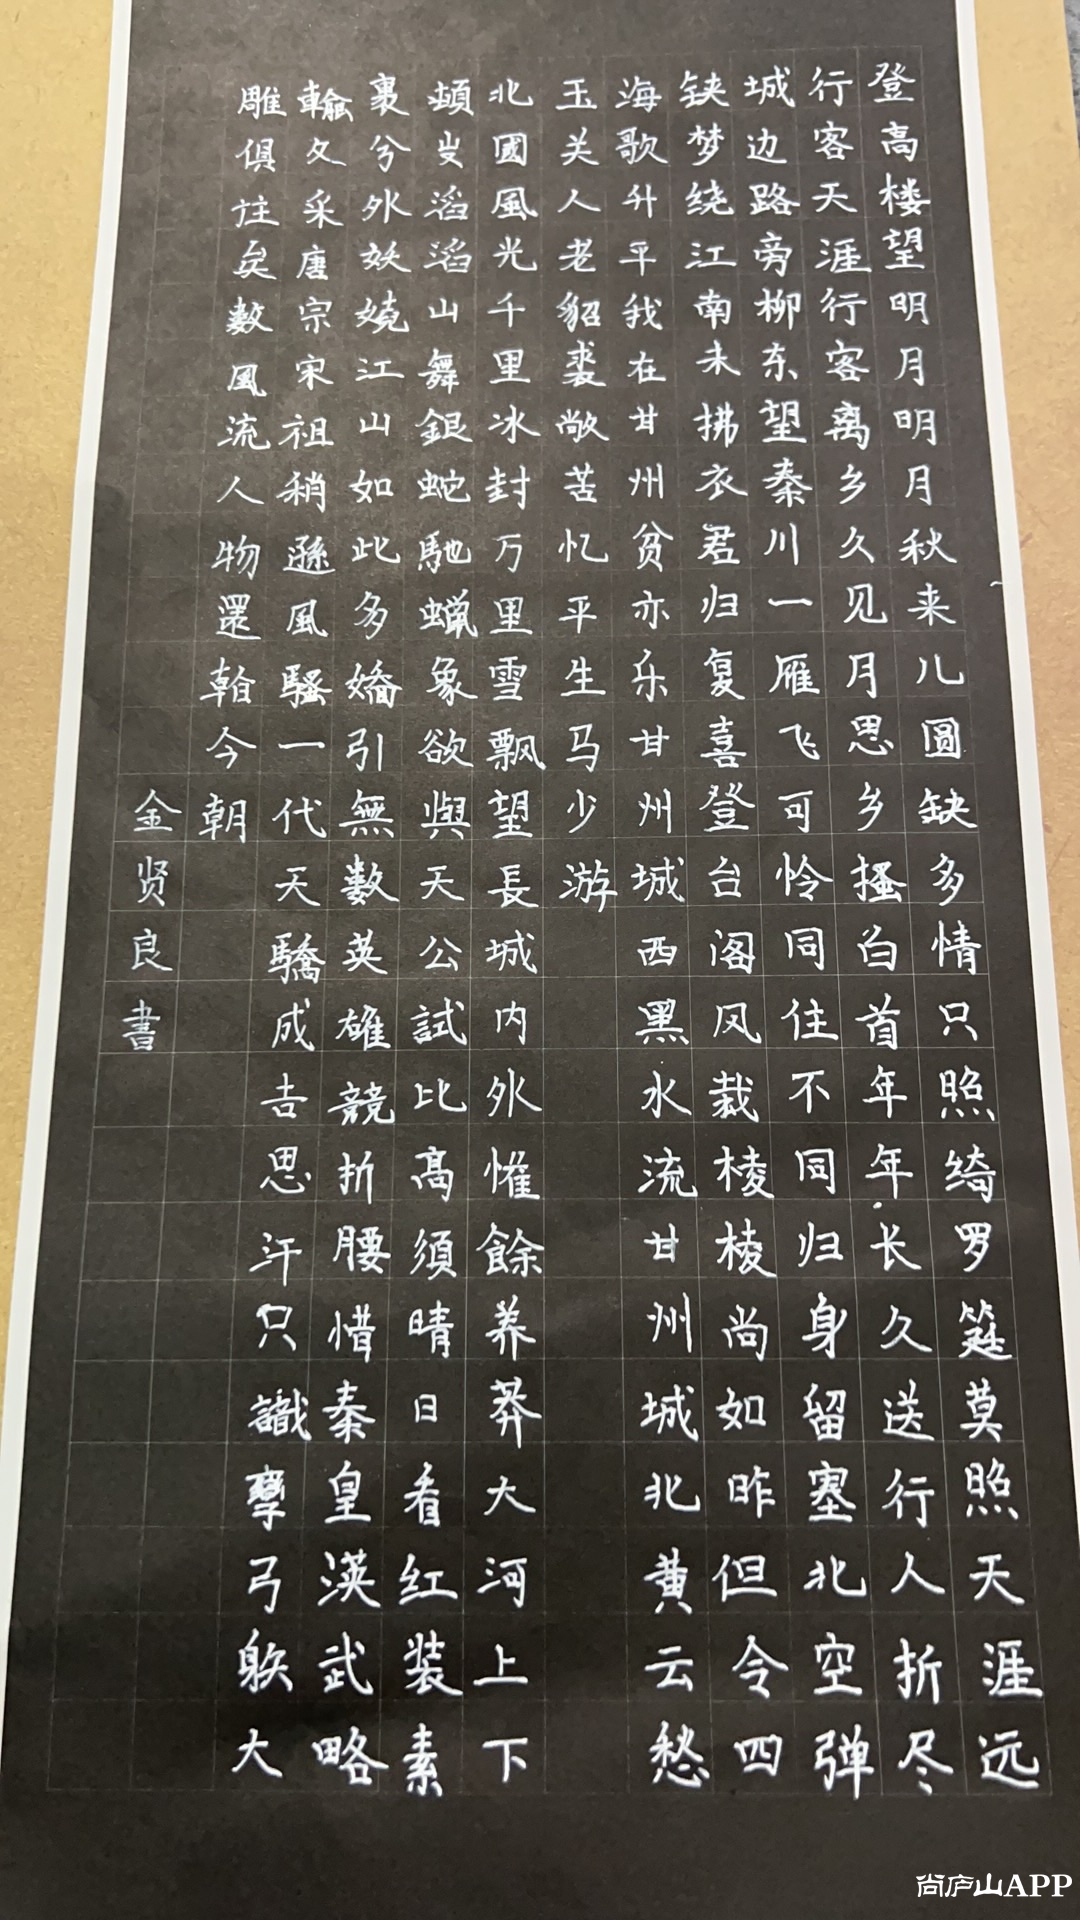 登高楼望明月明月秋来儿圆缺多情只照绮罗筵莫照天涯远
行客天涯行客离乡久见月思乡搔白首年年长久送行人折尽
城边路旁柳东望秦川一雁飞可怜同住不同归身留塞北空弹
铗梦绕江南未拂衣君归复喜登台阁风栽棱棱尚如昨但令四
海歌升平我在甘州贫亦乐甘州城西黑水流甘州城北黄云愁
玉关人老貂裘敝苦忆平生马少游
北國風光千里冰封万里雪飘望長城内外惟餘养莽大河上下
滔滔山舞銀蛇馳蠟象欲與天公試比高須晴日看红装素
裹兮外妖娆江山如此多嬌引無數英雄競折腰惜秦皇漢武略
輸文采唐宗宋祖稍遜風騷一代天驕成吉思汗只識弓大
雕俱註矣數風流人物還今朝
金贤良書
尚庐山APP